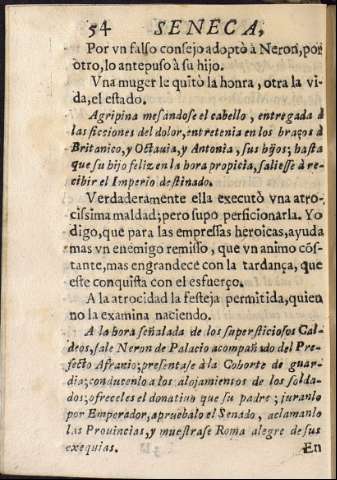 54 SENECA,
Por vn falso consejo adoptò à Neron, por
otro, lo antepuso à su hijo.
Vna muger le quitò la honra, otra la vi-
da, el estado.
Agripina mesandose el cabello, entregada à
las ficciones del dolor, entretenia en los braços à
Britanico, y Octauia, y Antonia, sus hijos; hasta
que su hijo feliz en la hora propicia, saliesse à re-
cibir el Imperio destinado.
Verdaderamente ella executò vna atro-
cissima maldad; pero supo perficionarla. Yo
digo, que para las empressas heroicas, ayuda
mas vn enemigo remisso, que vn animo cōs-
tante, mas engrandece con la tardança, que
este conquista con el esfuerço.
A la atrocidad la festeja permitida, quien
no la examina naciendo.
A la hora señalada de los supersticiosos Cal-
deos, sale Neron de Palacio acompañado del Pre-
fecto Afranio; presentase à la Cohorte de guar-
dia; conducenlo a los alojamientos de los solda-
dos; ofreceles el donatiuo que su padre; juranlo
por Emperador, aprueballo el Senado, aclamanlo
las Prouincias, y muestrase Roma alegre de sus
exequias. En